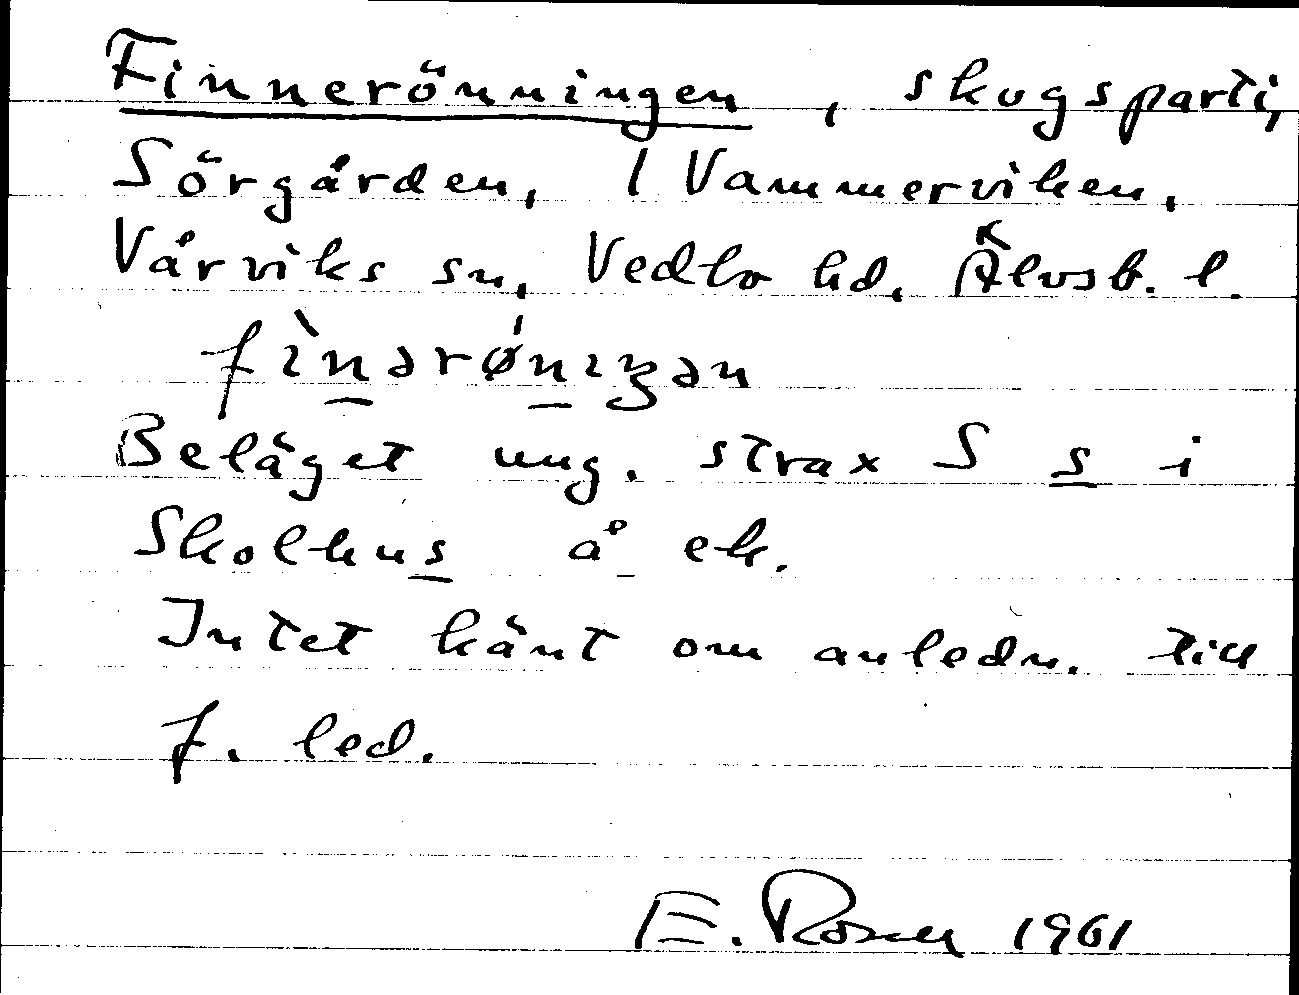 Finnerönningen, skogsparti,
Sörgården, 1 Vammerviken,
Vårviks sn, Vedbo hd, Älvsb. l.
fìnərǿnıŋən
Beläget ung. strax S s i
Skolhus å ek.
Intet känt om anledn. till
f. led.
E. Rosell 1961